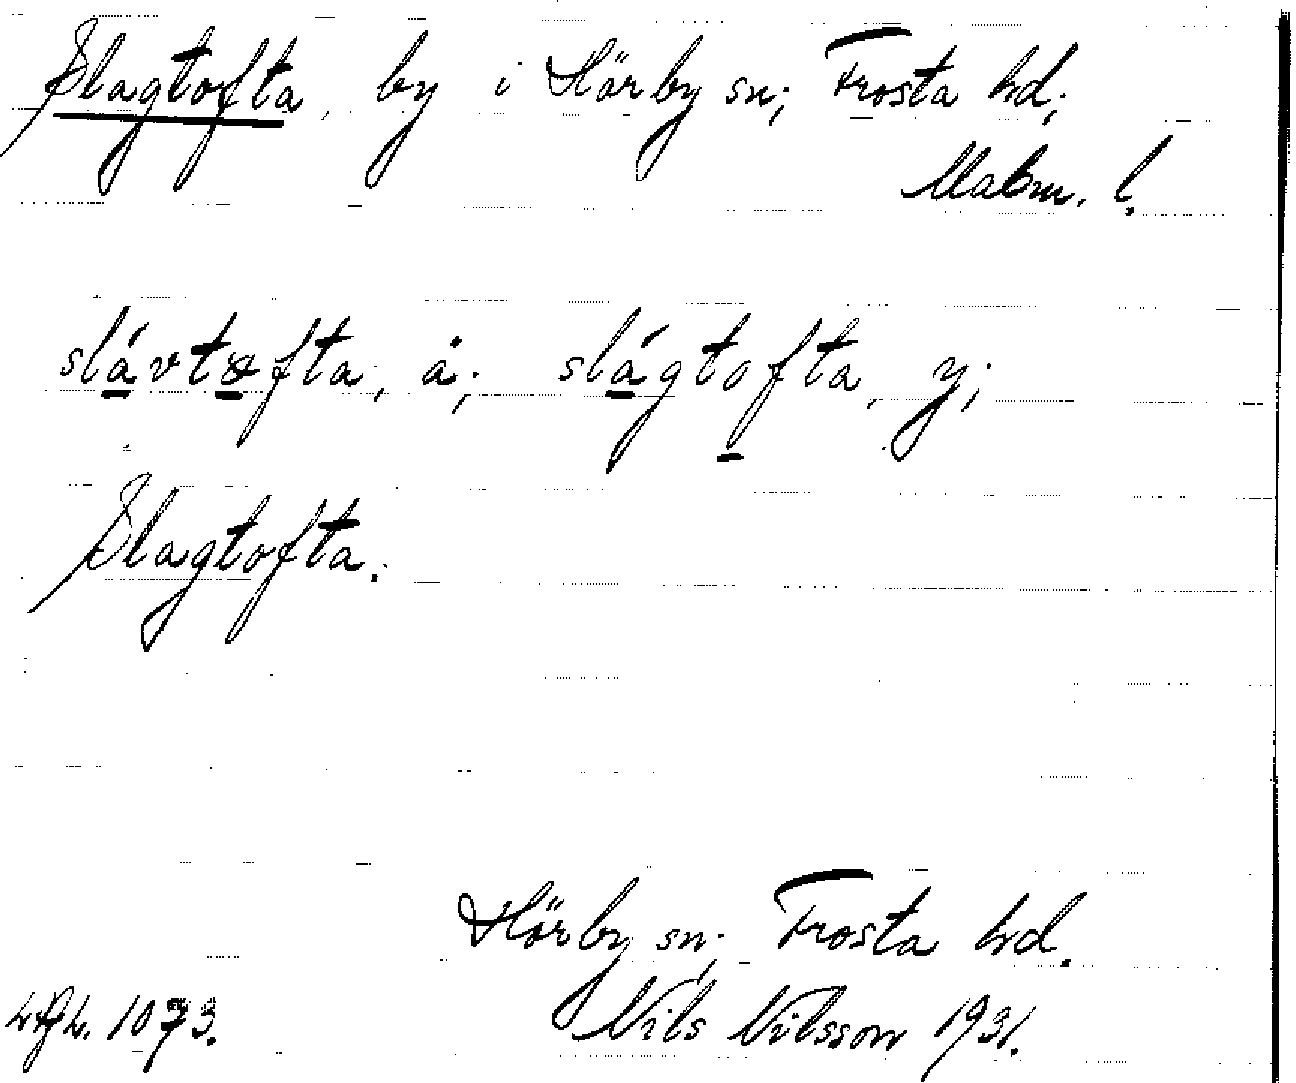 Slagtofta, by i Hörby sn; Frosta hd;
Malm. l.
slávtofta, ä; slágtofta, y;
Slagtofta.
Hörby sn; Frosta hd.
1073. Nils Nilsson 1931.